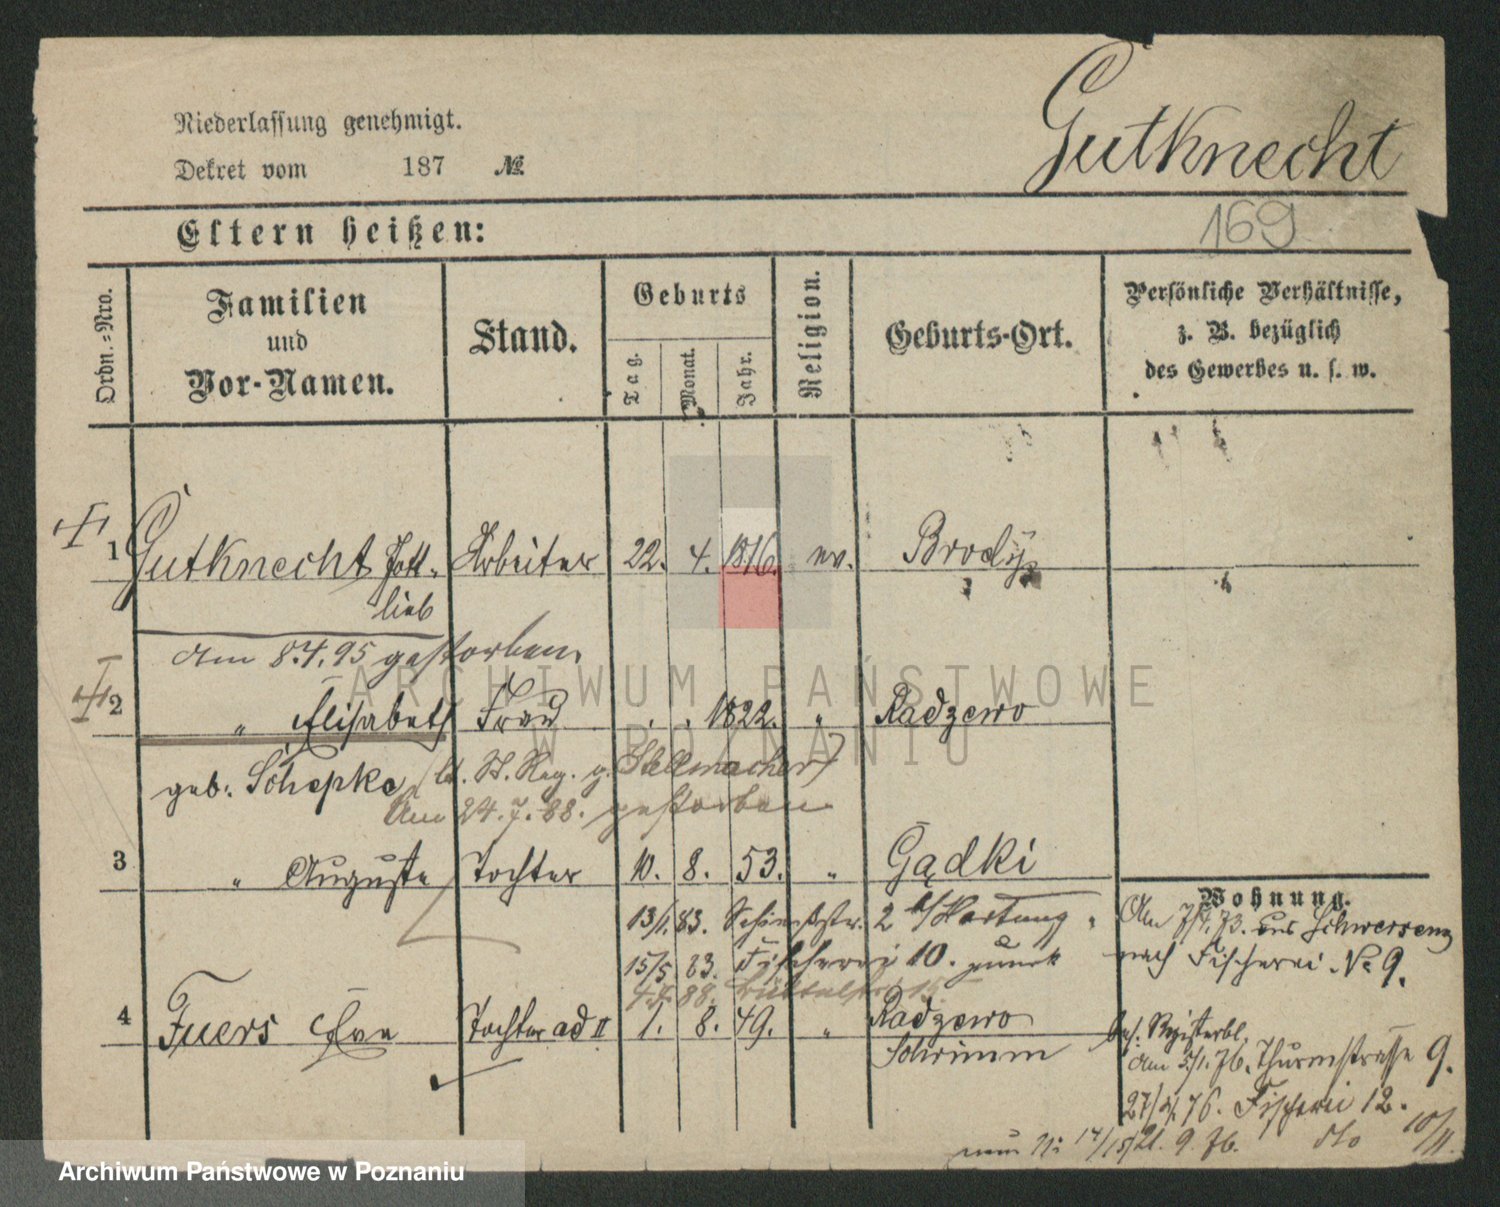 Gutknecht
Niederlassung genehmigt.
Dekret vom 187 №
169
Eltern heißen:
Ordn.-Nro.
Familien
und
Vor-Namen.
Stand.
Geburts
Tag.
Monat.
Jahr.
Religion.
Geburts-Ort.
Persönliche Verhältnisse,
z. B. bezüglich
des Gewerbes u. s. w.
1 Gutknecht Gott- Arbeiter 22. 4. 1816. ev. Brody
lieb
Am 8.4.95 gestorben.
2 " Elisabeth Frau . . 1822. " Radzewo
geb. Schepke (lt. St. Reg. g. Stellmacher)
Am 24.7.88. gestorben
3 " Auguste Tochter 10. 8. 53. " Gądki
Wohnung.
13/1.83. 2 b/Hartung
Am 7/4.73. aus Schwersenz
nach Fischerei № 9.
15/5. 83. Fischerei 10. zurück
4.4.88. 15.
4 Fuers Eva Tochter ad II 1. 8. 49. " Radzewo
Schrimm
bes. Registerbl.
Am 3/1.76. Thurmstrasse 9.
27/4.76. Fischerei 12.
21. 9. 76. dto 10/11.
ARCHIWUM PAŃSTWOWE
W POZNANIU
Archiwum Państwowe w Poznaniu